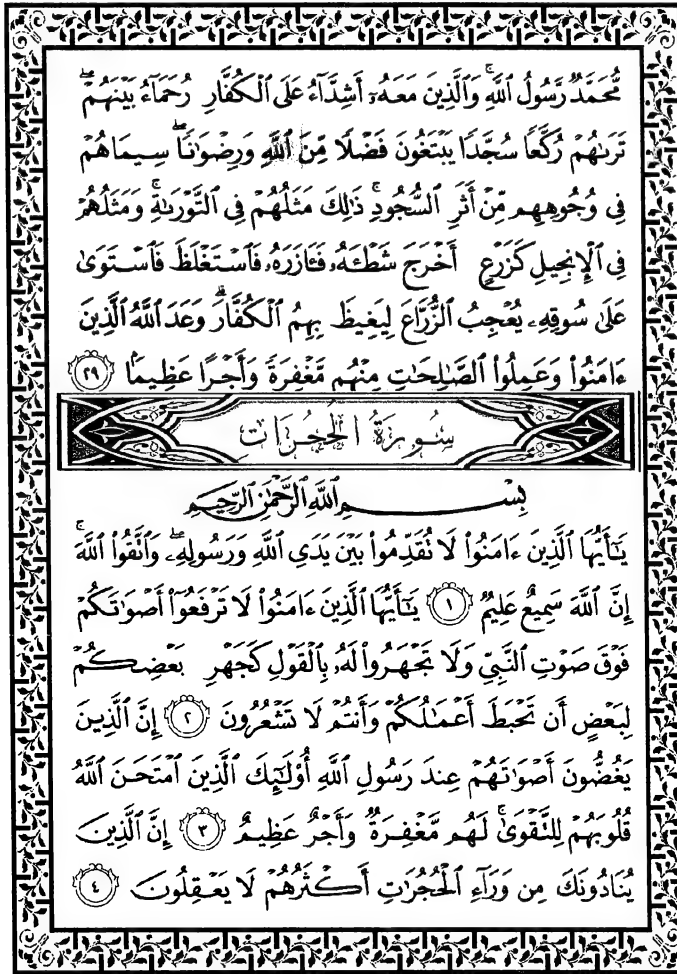 مُّحَمَّدٌ رَّسُولُ ٱللَّهِ ۚ وَٱلَّذِينَ مَعَهُۥٓ أَشِدَّآءُ عَلَى ٱلْكُفَّارِ رُحَمَآءُ بَيْنَهُمْ ۖ
تَرَىٰهُمْ رُكَّعًا سُجَّدًا يَبْتَغُونَ فَضْلًا مِّنَ ٱللَّهِ وَرِضْوَٰنًا ۖ سِيمَاهُمْ
فِى وُجُوهِهِم مِّنْ أَثَرِ ٱلسُّجُودِ ۚ ذَٰلِكَ مَثَلُهُمْ فِى ٱلتَّوْرَىٰةِ ۚ وَمَثَلُهُمْ
فِى ٱلْإِنجِيلِ كَزَرْعٍ أَخْرَجَ شَطْـَٔهُۥ فَـَٔازَرَهُۥ فَٱسْتَغْلَظَ فَٱسْتَوَىٰ
عَلَىٰ سُوقِهِۦ يُعْجِبُ ٱلزُّرَّاعَ لِيَغِيظَ بِهِمُ ٱلْكُفَّارَ ۗ وَعَدَ ٱللَّهُ ٱلَّذِينَ
ءَامَنُوا۟ وَعَمِلُوا۟ ٱلصَّٰلِحَٰتِ مِنْهُم مَّغْفِرَةً وَأَجْرًا عَظِيمًۢا ٢٩
سُورَةُ الْحُجُرَاتِ
بِسْمِ ٱللَّهِ ٱلرَّحْمَٰنِ ٱلرَّحِيمِ
يَـٰٓأَيُّهَا ٱلَّذِينَ ءَامَنُوا۟ لَا تُقَدِّمُوا۟ بَيْنَ يَدَىِ ٱللَّهِ وَرَسُولِهِۦ ۖ وَٱتَّقُوا۟ ٱللَّهَ ۚ
إِنَّ ٱللَّهَ سَمِيعٌ عَلِيمٌ ١ يَـٰٓأَيُّهَا ٱلَّذِينَ ءَامَنُوا۟ لَا تَرْفَعُوٓا۟ أَصْوَٰتَكُمْ
فَوْقَ صَوْتِ ٱلنَّبِىِّ وَلَا تَجْهَرُوا۟ لَهُۥ بِٱلْقَوْلِ كَجَهْرِ بَعْضِكُمْ
لِبَعْضٍ أَن تَحْبَطَ أَعْمَٰلُكُمْ وَأَنتُمْ لَا تَشْعُرُونَ ٢ إِنَّ ٱلَّذِينَ
يَغُضُّونَ أَصْوَٰتَهُمْ عِندَ رَسُولِ ٱللَّهِ أُو۟لَـٰٓئِكَ ٱلَّذِينَ ٱمْتَحَنَ ٱللَّهُ
قُلُوبَهُمْ لِلتَّقْوَىٰ ۚ لَهُم مَّغْفِرَةٌ وَأَجْرٌ عَظِيمٌ ٣ إِنَّ ٱلَّذِينَ
يُنَادُونَكَ مِن وَرَآءِ ٱلْحُجُرَٰتِ أَكْثَرُهُمْ لَا يَعْقِلُونَ ٤